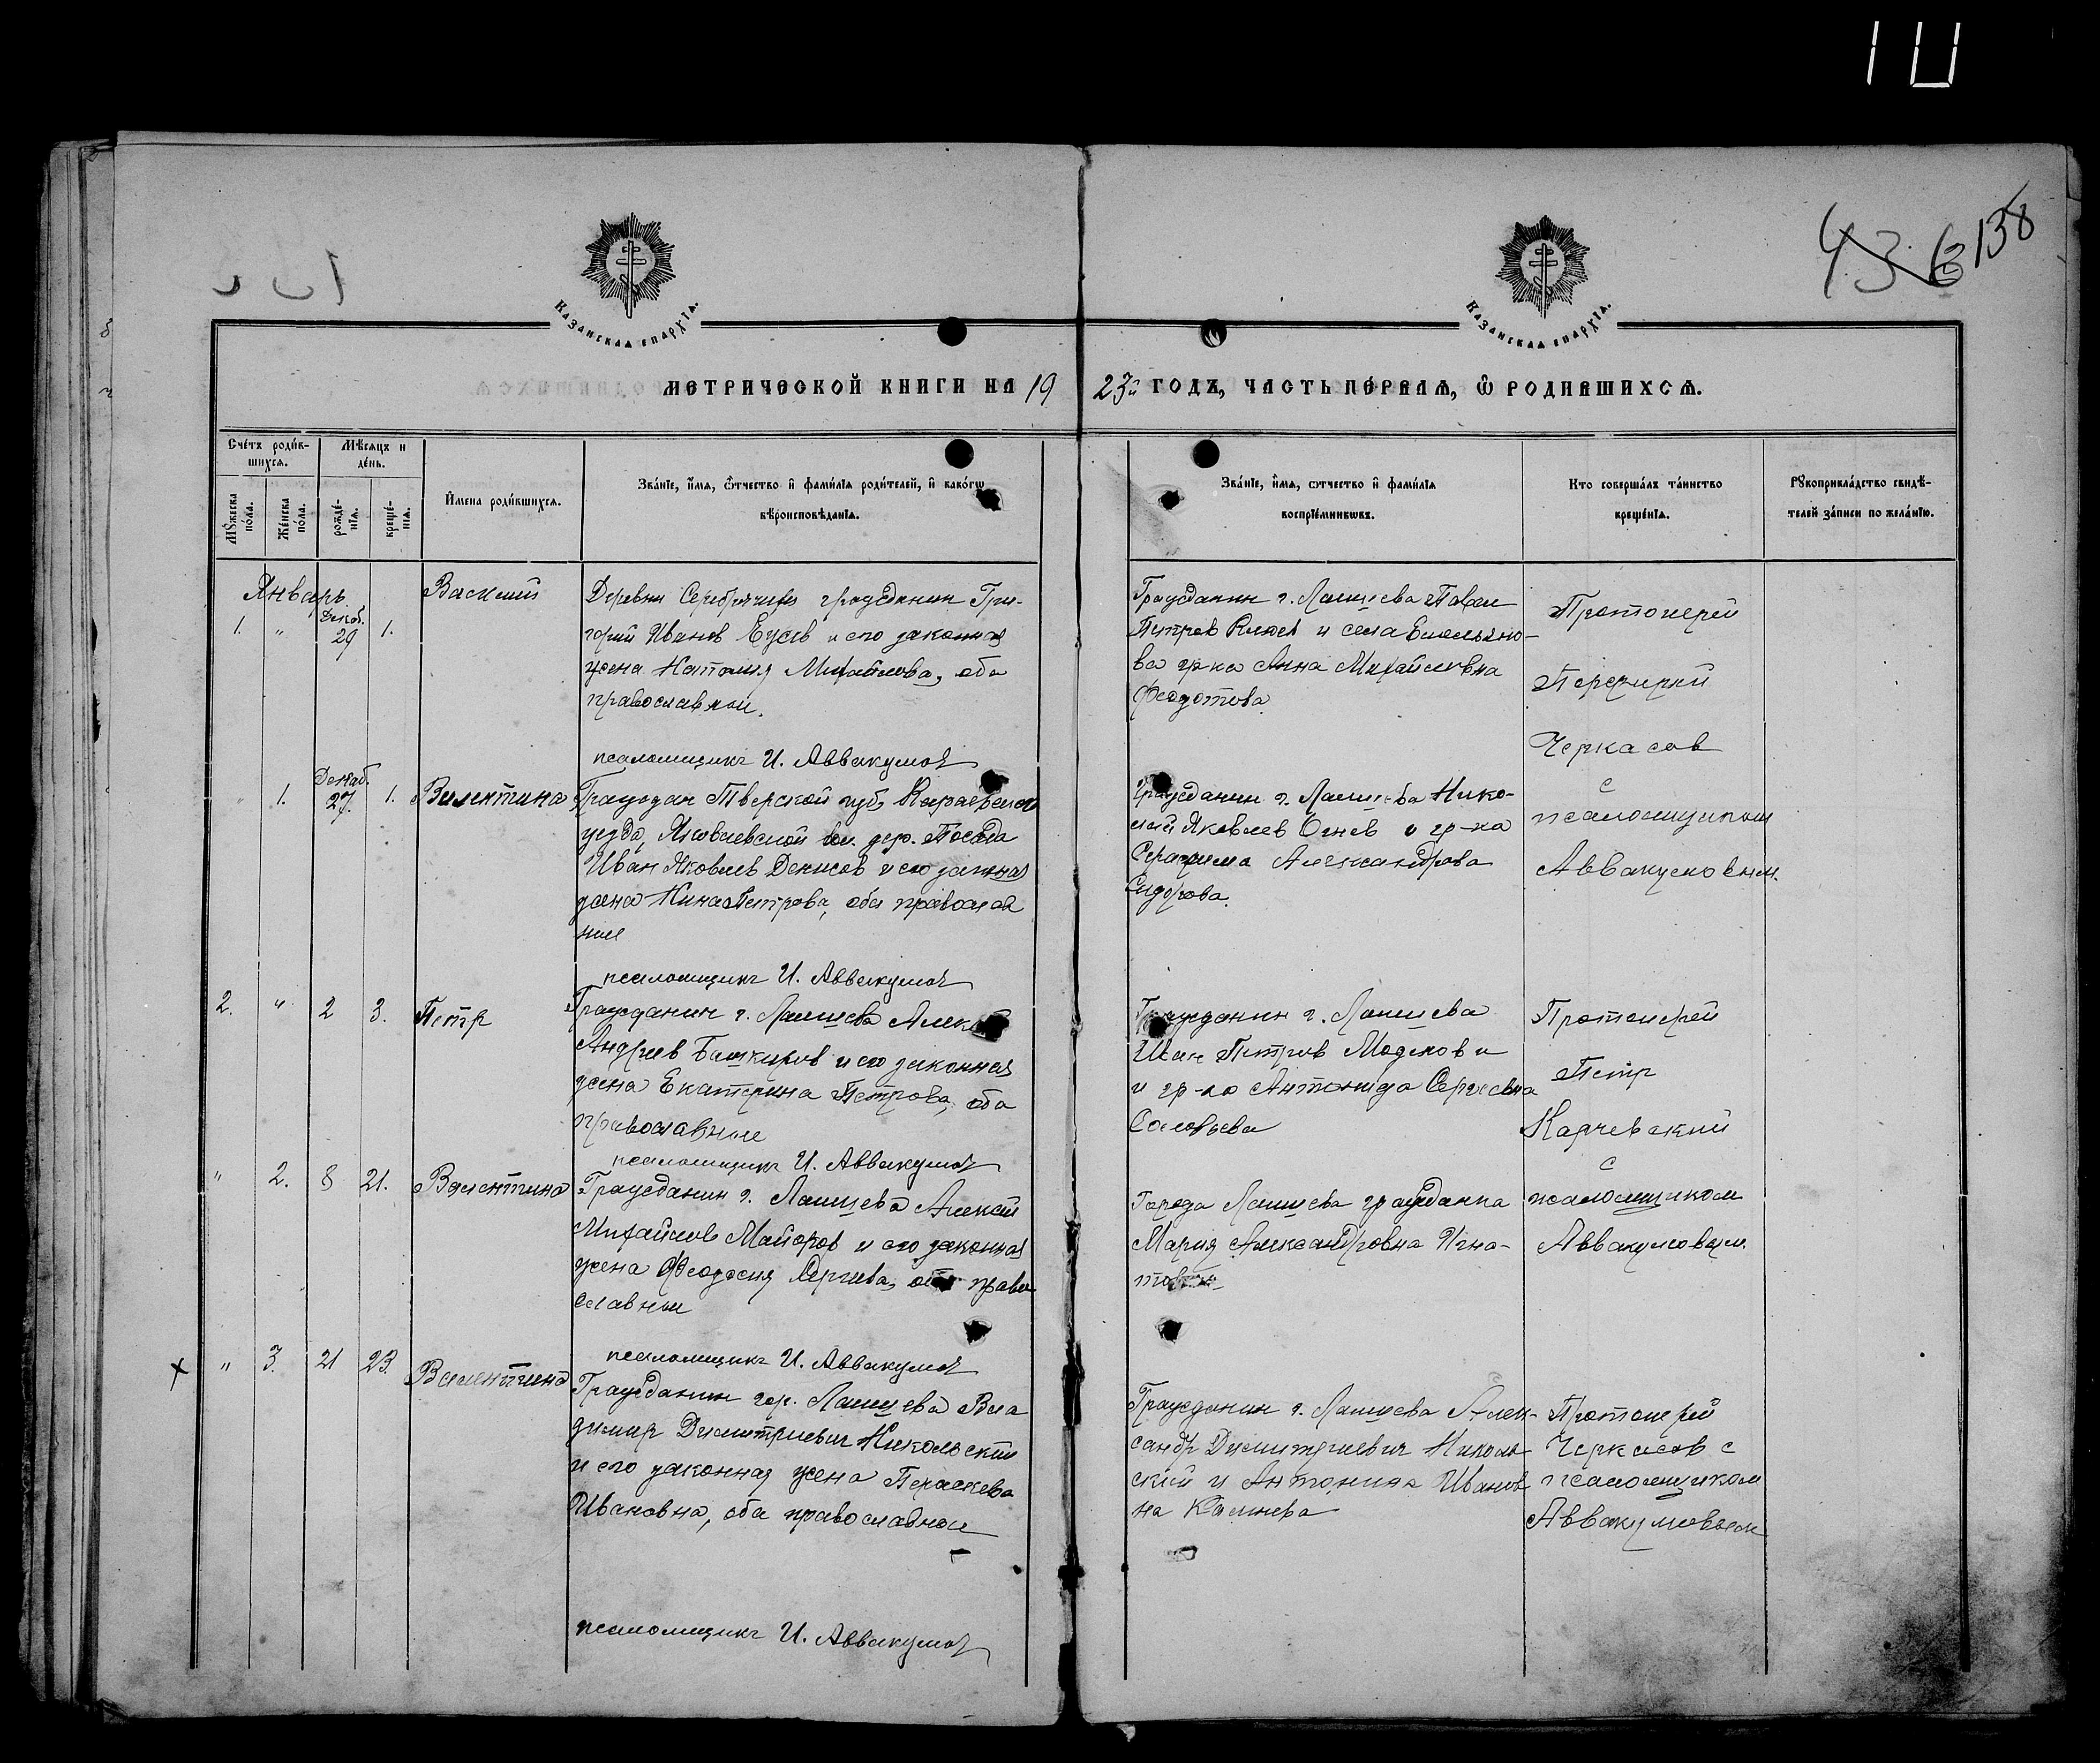 10
43 6 138
КАЗАНСКАѦ ЕПАРХІѦ.
КАЗАНСКАѦ ЕПАРХІѦ.
МЕТРИЧЕСКОЙ КНИГИ НА 19
23й ГОДЪ, ЧАСТЬ ПЕРВАѦ, Ѽ РОДИВШИХСѦ.
Сче́тъ роди́в-
шихсѧ.
Мѣ́сѧцъ и
де́нь.
Мꙋ́жеска
по́ла.
Же́нска
по́ла.
рожде́-
нїѧ.
креще́-
нїѧ.
И҆мена роди́вшихсѧ.
Зва́нїе, и҆́мѧ, ѻ҆́тчество и҆ фами́лїѧ роди́телей, и҆ како́гѡ
вѣроисповѣ́данїѧ.
Зва́нїе, и҆́мѧ, ѻтчество и҆ фами́лїѧ
воспрїе́мникѡвъ.
Кто соверша́лъ та́инство
креще́нїѧ.
Рꙋкоприкла́дство свидѣ́-
телей за́писи по жела́нїю.
Январь
1. " Декаб. 29 1. Василий
Деревни гражданин Гри-
горий Иванов Гусев и его законная
жена Наталия Михайлова, оба
православные.
псаломщикъ И. Аввакумов
Гражданин г. Лаишева Павел
Петров и села Емельяно-
ва гр-ка Анна Михайловна
Федотова
Протоиерей
Черкасов
с
псаломщиком
Аввакумовым.
" 1. Декаб. 27. 1. Валентина
Граждан Тверской губ,
уезда, Яковлевской вол. дер.
Иван Яковлев Денисов и его законная
жена Нина Петрова, оба православ
ные
псаломщикъ И. Аввакумов
Гражданин г. Лаишева Нико-
лай Яковлев Огнев и гр-ка
Серафима Александрова
Сидорова.
2. " 2 3. Петр
Гражданин г. Лаишева Алексей
Андреев Башкиров и его законная
жена Екатерина Петрова, оба
православные
псаломщикъ И. Аввакумов
Гражданин г. Лаишева
Иван Петров
и гр-ка Антонида Сергеевна
Соловьева
Протоиерей
Петр
Карчевский
с
псаломщиком
Аввакумовым.
" 2. 8 21. Валентина
Гражданин г. Лаишева Алексей
Михайлов Майоров и его законная
жена Феодосия Сергиева, оба право
славные
псаломщикъ И. Аввакумов
Города Лаишева гражданка
Мария Александровна Игна-
× " 3. 21 23. Валентина
Гражданин гор. Лаишева Вла
димир Димитриевич Никольский
и его законная жена Параскева
Ивановна, оба православные
псаломщикъ И. Аввакумов
Гражданин г. Лаишева Алек-
сандр Димитриевич Николь-
ский и Антонина Иванов
на
Протоиерей
Черкасов с
псаломщиком
Аввакумовым